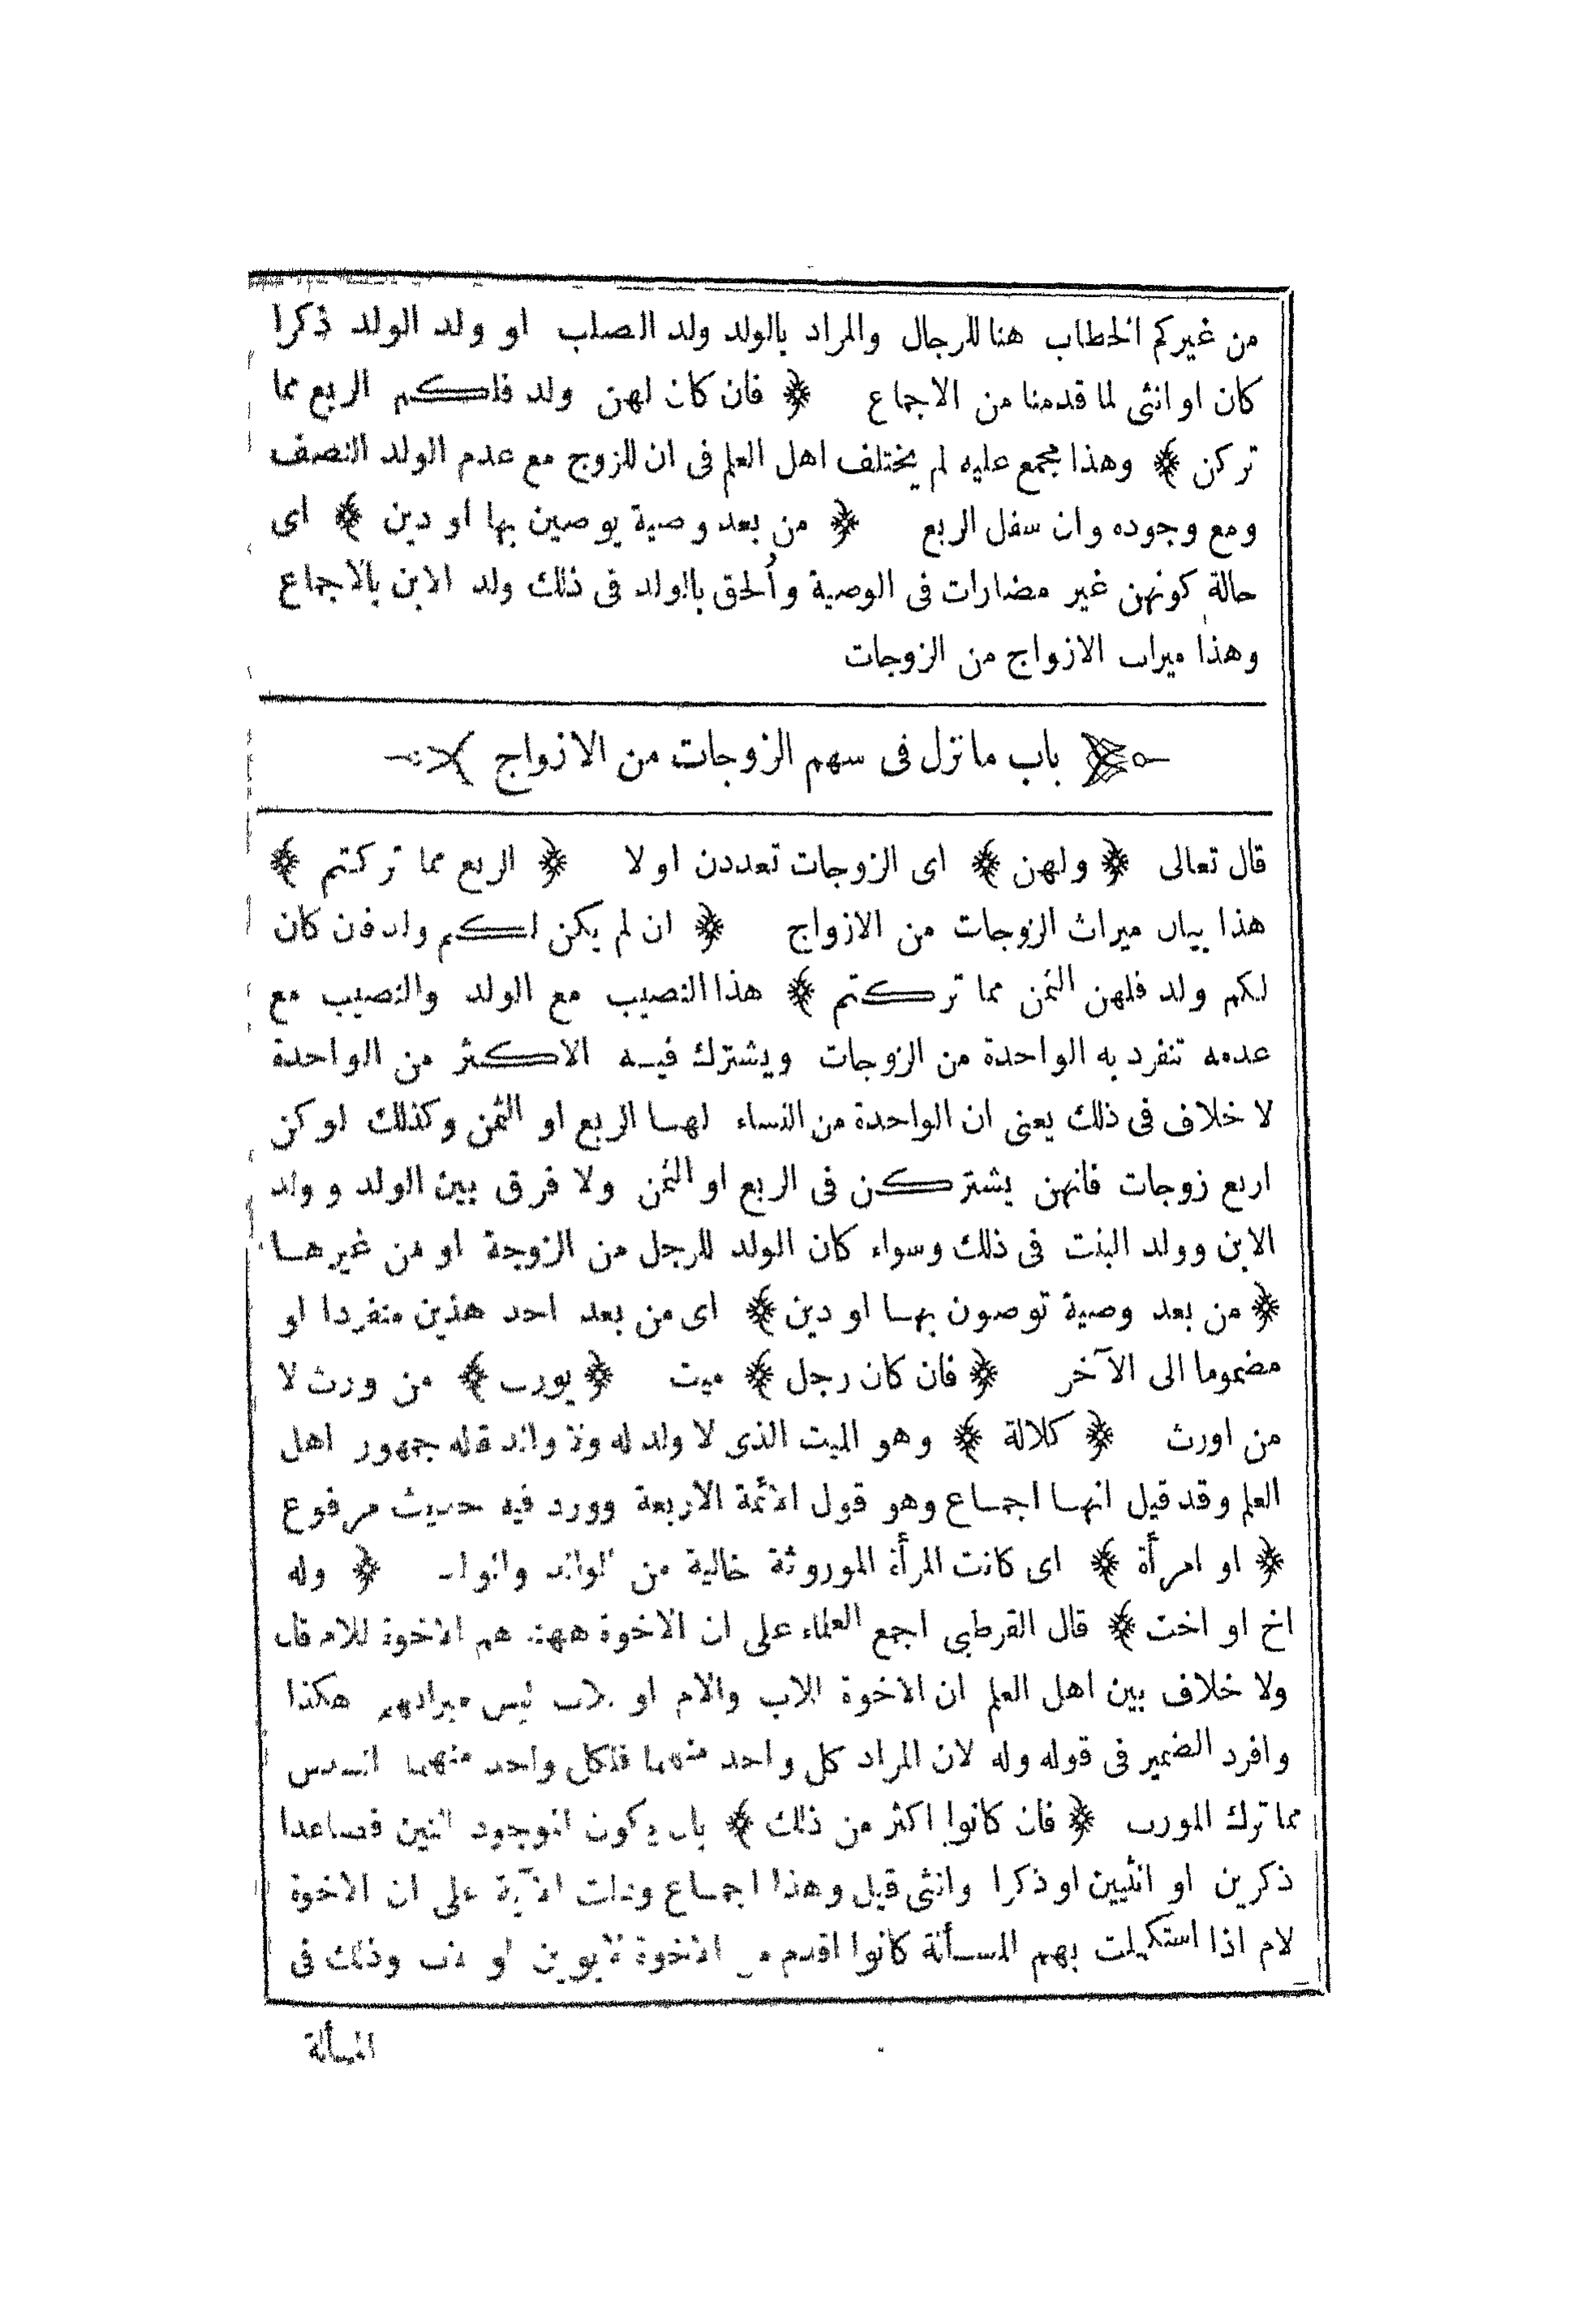 من غيركم الخطاب هنا للرجال والمراد بالولد ولد الصلب او ولد الولد ذكرا
كان او انثى لما قدمنا من الاجماع ﴿ فان كان لهن ولد فلكم الربع مما
تركن ﴾ وهذا مجمع عليه لم يختلف اهل العلم فى ان للزوج مع عدم الولد النصف
ومع وجوده وان سفل الربع ﴿ من بعد وصية يوصين بها او دين ﴾ اى
حالة كونهن غير مضارات فى الوصية وأُلحق بالولد فى ذلك ولد الابن بالاجماع
وهذا ميراث الازواج من الزوجات
باب ما نزل فى سهم الزوجات من الازواج
قال تعالى ﴿ ولهن ﴾ اى الزوجات تعددن او لا ﴿ الربع مما تركتم ﴾
هذا بيان ميراث الزوجات من الازواج ﴿ ان لم يكن لكم ولد فان كان
لكم ولد فلهن الثمن مما تركتم ﴾ هذا النصيب مع الولد والنصيب مع
عدمه تنفرد به الواحدة من الزوجات ويشترك فيه الاكثر من الواحدة
لا خلاف فى ذلك يعنى ان الواحدة من النساء لها الربع او الثمن وكذلك لو كن
اربع زوجات فانهن يشتركن فى الربع او الثمن ولا فرق بين الولد وولد
الابن وولد البنت فى ذلك وسواء كان الولد للرجل من الزوجة او من غيرها
﴿ من بعد وصية توصون بها او دين ﴾ اى من بعد احد هذين منفردا او
مضموما الى الآخر ﴿ فان كان رجل ﴾ ميت ﴿ يورث ﴾ من ورث لا
من اورث ﴿ كلالة ﴾ وهو الميت الذى لا ولد له ولا والد قاله جمهور اهل
العلم وقد قيل انها اجماع وهو قول الائمة الاربعة وورد فيه حديث مرفوع
﴿ او امرأة ﴾ اى كانت المرأة الموروثة خالية من الوالد والولد ﴿ وله
اخ او اخت ﴾ قال القرطبى اجمع العلماء على ان الاخوة ههنا هم الاخوة للام قال
ولا خلاف بين اهل العلم ان الاخوة للاب والام او للاب ليس ميراثهم هكذا
وافرد الضمير فى قوله وله لان المراد كل واحد منهما فلكل واحد منهما السدس
مما ترك المورث ﴿ فان كانوا اكثر من ذلك ﴾ بان يكون الموجود اثنين فصاعدا
ذكرين او انثيين او ذكرا وانثى قيل وهذا اجماع ودلت الآية على ان الاخوة
لام اذا استكملت بهم المسألة كانوا اقدم من الاخوة لابوين او لاب وذلك فى
المسألة